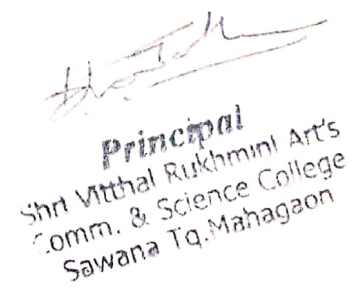 Principal
Shri Vitthal Rukhmini Art's
Comm. & Science College
Sawana Tq.Mahagaon